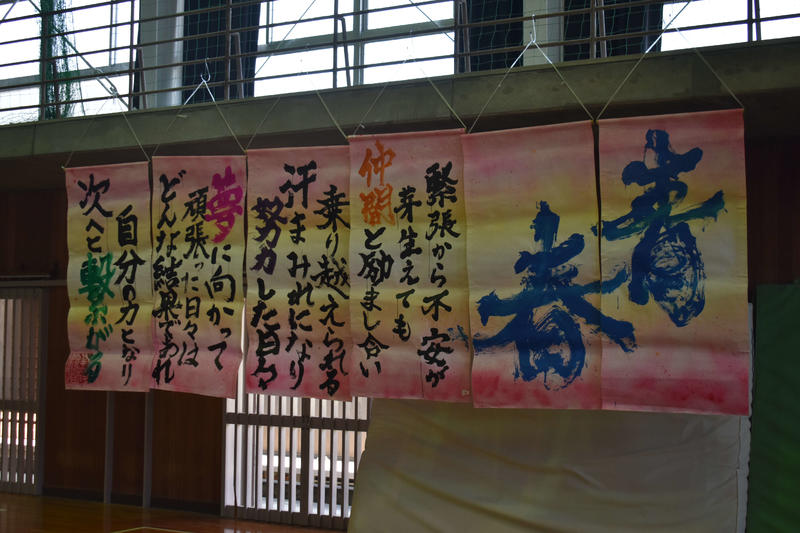 青春
緊張から不安が
芽生えても
仲間と励まし合い
乗り越えられる
汗まみれになり
努力した日々
夢に向かって
頑張った日々は
どんな結果であれ
自分の力となり
次へと繋がる